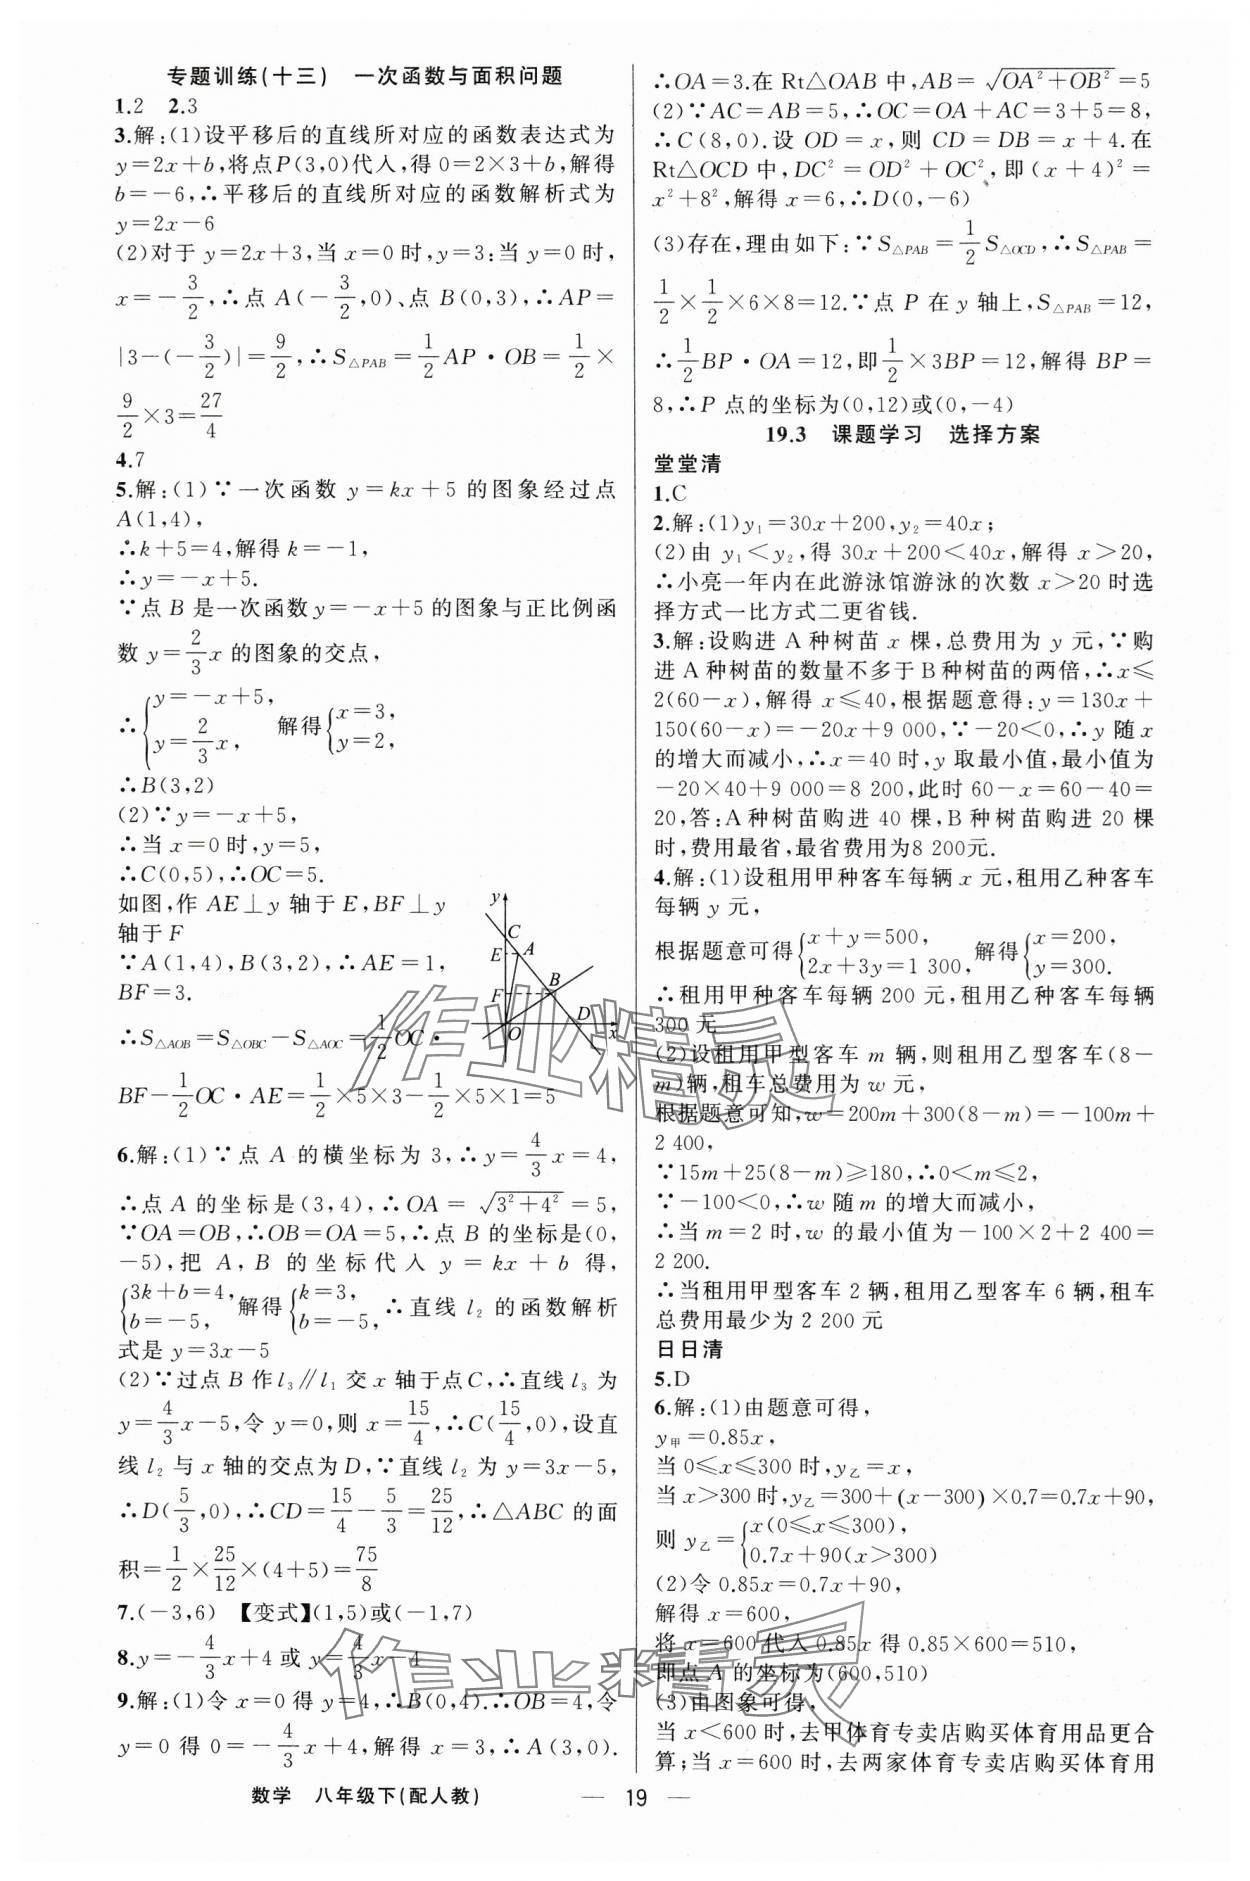 专题训练(十三)　一次函数与面积问题
1.2　2.3
3.解:(1)设平移后的直线所对应的函数表达式为
y=2x+b,将点P(3,0)代入,得 0=2×3+b,解得
b=-6,∴平移后的直线所对应的函数解析式为
y=2x-6
(2)对于 y=2x+3,当 x=0 时,y=3;当 y=0 时,
x=-3/2,∴点 A(-3/2,0)、点 B(0,3),∴AP=
|3-(-3/2)|=9/2,∴S△PAB=1/2AP·OB=1/2×
9/2×3=27/4
4.7
5.解:(1)∵一次函数 y=kx+5 的图象经过点
A(1,4),
∴k+5=4,解得 k=-1,
∴y=-x+5.
∵点 B 是一次函数 y=-x+5 的图象与正比例函
数 y=2/3x 的图象的交点,
∴{y=-x+5, y=2/3x, 解得{x=3, y=2,
∴B(3,2)
(2)∵y=-x+5,
∴当 x=0 时,y=5,
∴C(0,5),∴OC=5.
如图,作 AE⊥y 轴于 E,BF⊥y
轴于 F
∵A(1,4),B(3,2),∴AE=1,
BF=3.
y C E A F B O D x
∴S△AOB=S△OBC-S△AOC=1/2OC·
BF-1/2OC·AE=1/2×5×3-1/2×5×1=5
6.解:(1)∵点 A 的横坐标为 3,∴y=4/3x=4,
∴点 A 的坐标是(3,4),∴OA=√(3²+4²)=5,
∵OA=OB,∴OB=OA=5,∴点 B 的坐标是(0,
-5),把 A, B 的坐标代入 y=kx+b 得,
{3k+b=4, b=-5, 解得{k=3, b=-5, ∴直线 l₂ 的函数解析
式是 y=3x-5
(2)∵过点 B 作 l₃∥l₁ 交 x 轴于点C,∴直线 l₃ 为
y=4/3x-5,令 y=0,则 x=15/4,∴C(15/4,0),设直
线 l₂ 与 x 轴的交点为 D,∵直线 l₂ 为 y=3x-5,
∴D(5/3,0),∴CD=15/4-5/3=25/12,∴△ABC 的面
积=1/2×25/12×(4+5)=75/8
7.(-3,6)　【变式】(1,5)或(-1,7)
8.y=-4/3x+4 或 y=4/3x-4
9.解:(1)令 x=0 得 y=4,∴B(0,4).∴OB=4,令
y=0 得 0=-4/3x+4,解得 x=3,∴A(3,0).
∴OA=3.在 Rt△OAB 中,AB=√(OA²+OB²)=5
(2)∵AC=AB=5,∴OC=OA+AC=3+5=8,
∴C(8,0).设 OD=x,则 CD=DB=x+4.在
Rt△OCD 中,DC²=OD²+OC²,即(x+4)²=
x²+8²,解得 x=6,∴D(0,-6)
(3)存在,理由如下:∵S△PAB=1/2S△OCD,∴S△PAB=
1/2×1/2×6×8=12.∵点 P 在 y 轴上,S△PAB=12,
∴1/2BP·OA=12,即1/2×3BP=12,解得 BP=
8,∴P 点的坐标为(0,12)或(0,-4)
19.3　课题学习　选择方案
堂堂清
1.C
2.解:(1)y₁=30x+200,y₂=40x;
(2)由 y₁<y₂,得 30x+200<40x,解得 x>20,
∴小亮一年内在此游泳馆游泳的次数 x>20 时选
择方式一比方式二更省钱.
3.解:设购进 A 种树苗 x 棵,总费用为 y 元,∵购
进 A 种树苗的数量不多于 B 种树苗的两倍,∴x≤
2(60-x),解得 x≤40,根据题意得:y=130x+
150(60-x)=-20x+9 000,∵-20<0,∴y 随 x
的增大而减小,∴x=40 时,y 取最小值,最小值为
-20×40+9 000=8 200,此时 60-x=60-40=
20,答:A 种树苗购进 40 棵,B 种树苗购进 20 棵
时,费用最省,最省费用为8 200元.
4.解:(1)设租用甲种客车每辆 x 元,租用乙种客车
每辆 y 元,
根据题意可得{x+y=500, 2x+3y=1 300, 解得{x=200, y=300.
∴租用甲种客车每辆 200 元,租用乙种客车每辆
300 元
(2)设租用甲型客车 m 辆,则租用乙型客车(8-
m)辆,租车总费用为 w 元,
根据题意可知,w=200m+300(8-m)=-100m+
2 400,
∵15m+25(8-m)≥180,∴0<m≤2,
∵-100<0,∴w 随 m 的增大而减小,
∴当 m=2 时,w 的最小值为-100×2+2 400=
2 200.
∴当租用甲型客车 2 辆,租用乙型客车 6 辆,租车
总费用最少为 2 200 元
日日清
5.D
6.解:(1)由题意可得,
y甲=0.85x,
当 0≤x≤300 时,y乙=x,
当 x>300 时,y乙=300+(x-300)×0.7=0.7x+90,
则 y乙={x(0≤x≤300), 0.7x+90(x>300)
(2)令 0.85x=0.7x+90,
解得 x=600,
将 x=600 代入 0.85x 得 0.85×600=510,
即点 A 的坐标为(600,510)
(3)由图象可得,
当 x<600 时,去甲体育专卖店购买体育用品更合
算;当 x=600 时,去两家体育专卖店购买体育用
数学　八年级下(配人教)　— 19 —
作业精灵
作业精灵